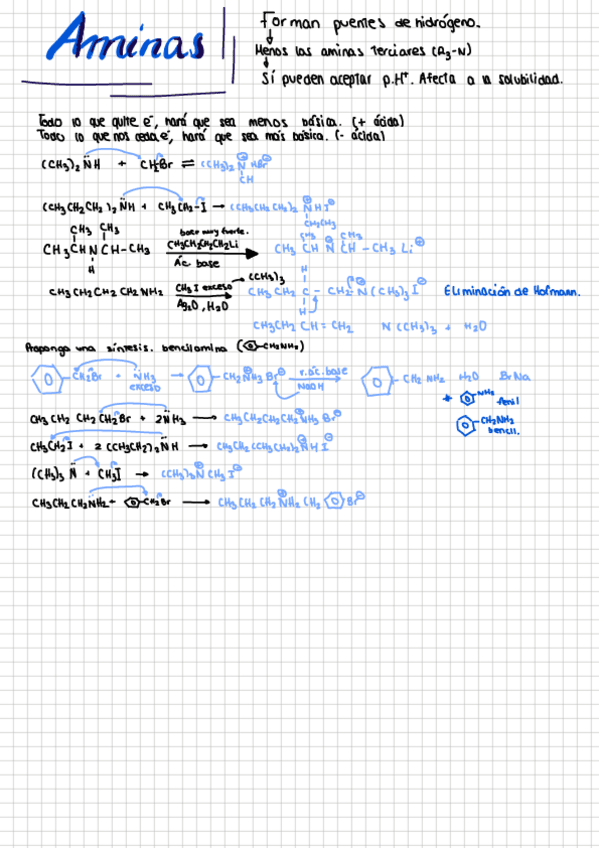 Aminas
Forman puentes de hidrógeno.
Menos las aminas terciares (R3-N)
Sí pueden aceptar p.H+. Afecta a la solubilidad.
Todo lo que quite e-, hará que sea menos básica. (+ ácida)
Todo lo que nos ceda e-, hará que sea más básica. (- ácida)
(CH3)2 NH + CH3Br ⇌ (CH3)2 N HBr
CH
(CH3CH2CH2)2NH + CH3CH2-I → (CH3CH2CH2)2 NH I⊖
CH2CH3
CH3 CH3
CH3CH N CH-CH3
H
base muy fuerte.
CH3CH2CH2CH2Li
Ác. base
CH3 CH3
CH3 CH N CH-CH3 Li⊕
CH3CH2CH2CH2NH2
CH3I exceso
Ag2O, H2O
(CH3)3
H
CH3CH2 C - CH2-N(CH3)3I⊖
H
Eliminación de Hofmann.
CH3CH2CH=CH2 N(CH3)3 + H2O
Proponga una síntesis. bencilamina (-CH2NH2)
CH2Br + NH3 → CH2NH3 Br⊖ r.ác.base → CH2NH2 H2O BrNa
exceso
NaOH
* NH2
fenil
CH2NH2
bencil.
CH3CH2CH2CH2Br + 2NH3 → CH3CH2CH2CH2NH3 Br⊖
CH3CH2I + 2(CH3CH2)2NH → CH3CH2(CH3CH2)2NH I⊖
(CH3)3N + CH3I → (CH3)3N CH3 I⊖
CH3CH2CH2NH2 + -CH2Br → CH3CH2CH2NH2CH2 Br⊖